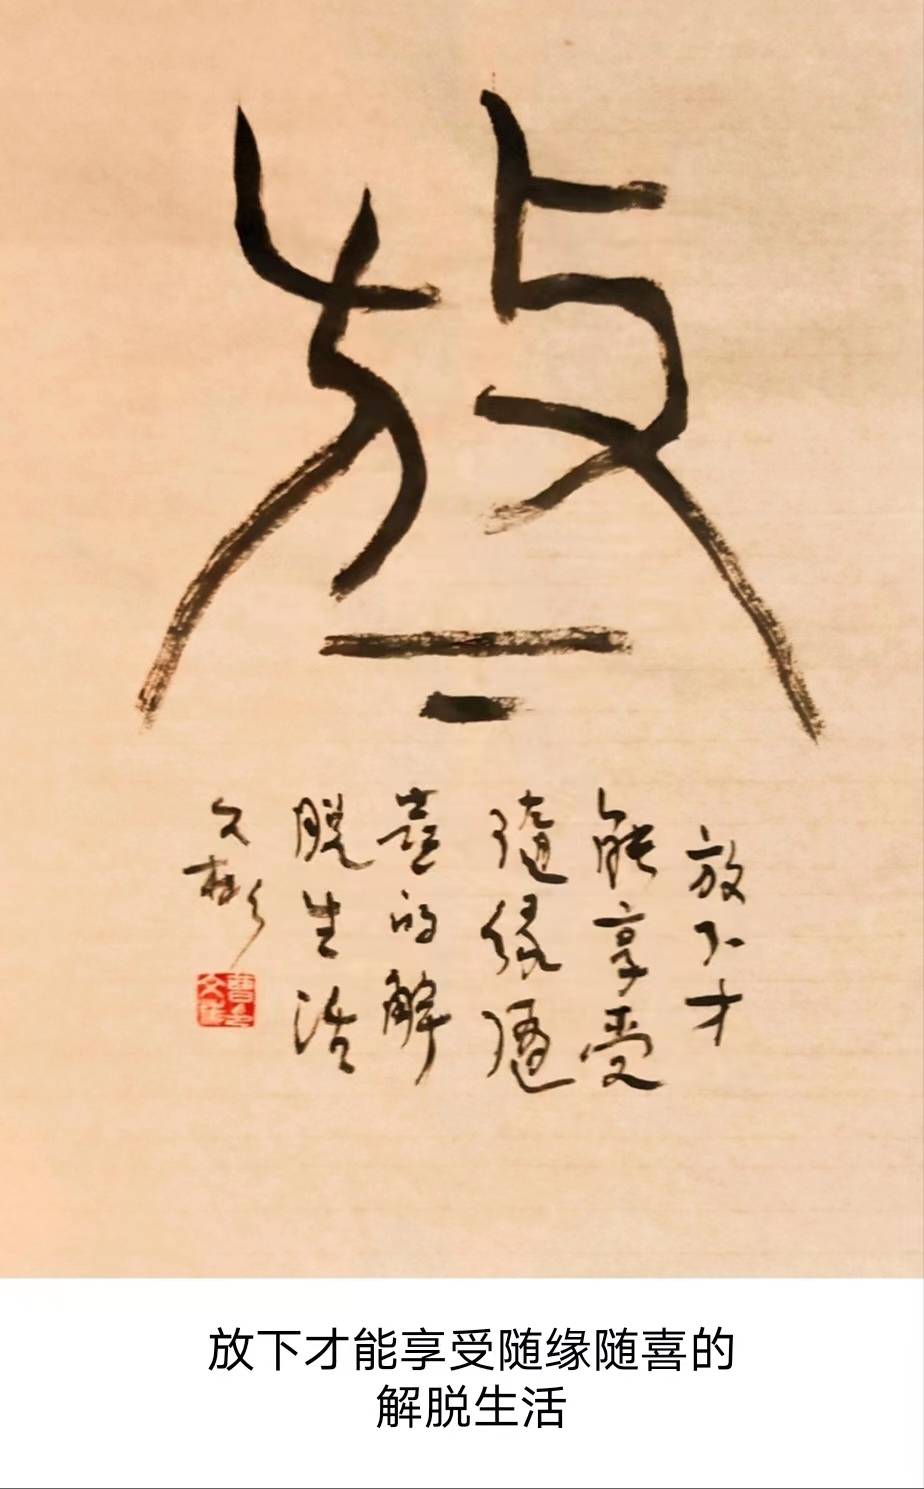 放下
放下才
能享受
随缘随
喜的解
脱生活
文彬
放下才能享受随缘随喜的
解脱生活